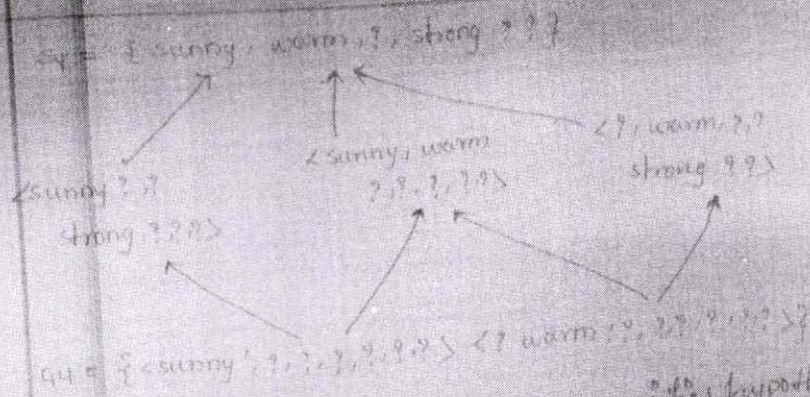 S4 = { sunny, warm, ?, strong ? ? }
<sunny ?, ?
strong, ? ? ?>
<sunny, warm
?, ?, ?, ? ?>
<?, warm, ?, ?
strong ? ?>
G4 = { <sunny, ?, ?, ?, ?, ?, ?> <? warm, ?, ?, ?, ?, ?, ?> }